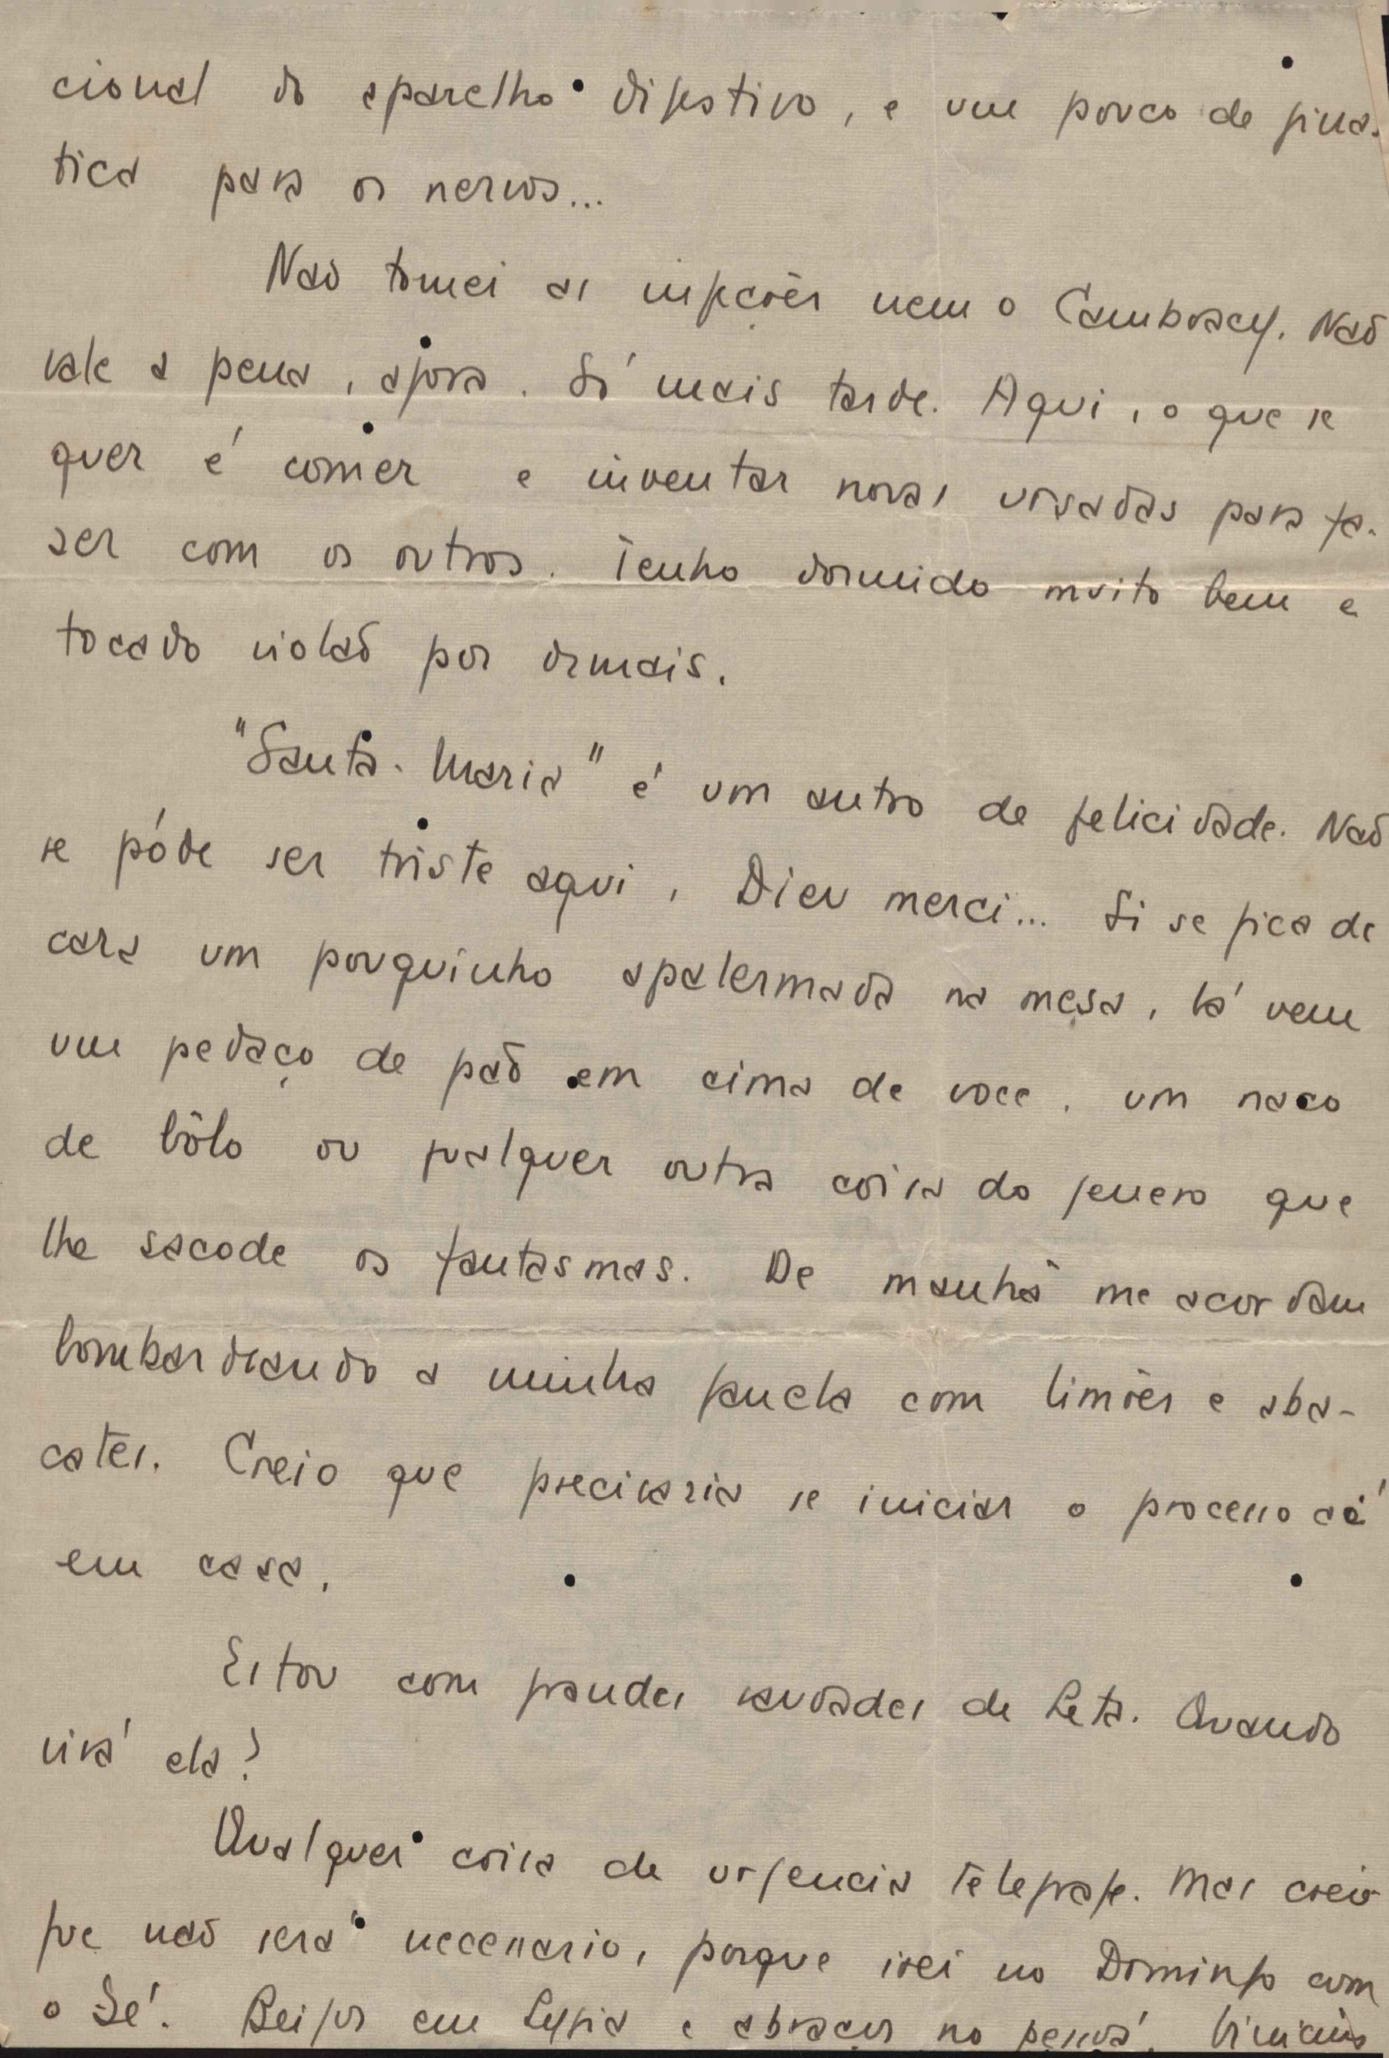 cional do aparelho digestivo, e um pouco de ginas-
tica para os nervos...
Não tomei as injeções nem o Camboacy. Não
vale a pena, agora. Só mais tarde. Aqui, o que se
quer é comer e inventar novas ursadas para fa-
zer com os outros. Tenho dormido muito bem e
tocado violão por demais.
"Santa-Maria" é um antro de felicidade. Não
se póde ser triste aqui, Dieu merci... Si se fica de
cara um pouquinho apalermada na mesa, lá vem
um pedaço de pão em cima de voce, um naco
de bôlo ou qualquer outra coisa do genero que
lhe sacode os fantasmas. De manhã me acordam
bombardeando a minha janela com limões e aba-
cates. Creio que precisaria se iniciar o processo aí
em casa.
Estou com grandes saudades de Leta. Quando
virá ela?
Qualquer coisa de urgencia telegrafe. Mas creio
que não será necessario, porque irei no Domingo com
o Zé. Beijos em Lygia e abraços no pessoá. Vinicius